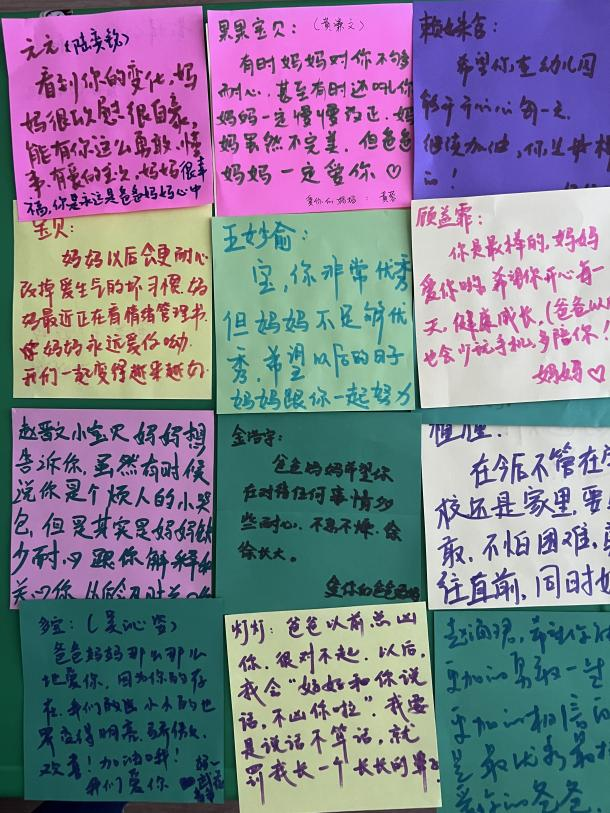 元元(陆奕彀)
看到你的变化,妈
妈很欣慰很自豪,
能有你这么勇敢,懂
事,有爱的宝贝,妈妈很幸
福,你是永远是爸爸妈妈心中
果果宝贝:
有时妈妈对你不够
耐心,甚至有时还吼你
妈妈一定慢慢改正,妈
妈虽然不完美,但爸爸
妈妈一定爱你♡
爱你的妈妈:
希望你在幼儿园
能开开心心每一天
继续加油,你是最棒
的!
宝贝:
妈妈以后会更耐心
改掉爱生气的坏习惯,妈
妈最近正在看情绪管理书.
妈妈永远爱你呦.
我们一起变得越来越好
王妙俞:
宝,你非常优秀
但妈妈不足够优
秀,希望以后的日子
妈妈跟你一起努力
顾益霏:
你是最棒的,妈妈
爱你哟,希望你开心每一
天,健康成长,(爸爸以后
也会少玩手机,多陪你.
妈妈♡
赵晋文小宝贝妈妈想
告诉你,虽然有时候
说你是个烦人的小哭
包,但是其实是妈妈缺
少耐心跟你解释和
关心你,
金浩宇:
爸爸妈妈希望你
在对待任何事情多
些耐心,不急不燥,徐
徐长大。
爱你的爸爸妈妈
在今后不管在学
校还是家里,要
敢,不怕困难,勇
往直前,同时
爸爸妈妈那么那么
地爱你,因为你的存
在,我们的
欢喜!加油哦!
我们爱你
灯灯:爸爸以前总凶
你,很对不起,以后,
我会“好好和你说
话,不凶你啦”,我要
是说话不算话,就
罚我长一个长长的鼻子
更加的勇敢一些
更加的相信
是最优秀最棒
爱你的爸爸